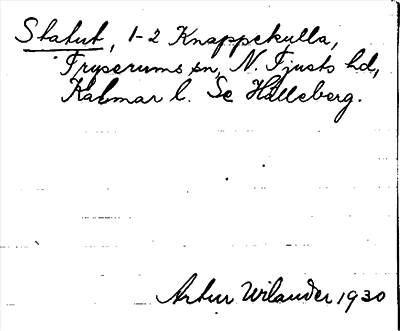 Statut, 1-2 Knappekulla,
Tryserums sn, N. Tjusts hd,
Kalmar l. Se Hälleberg.
Artur Wilander 1930